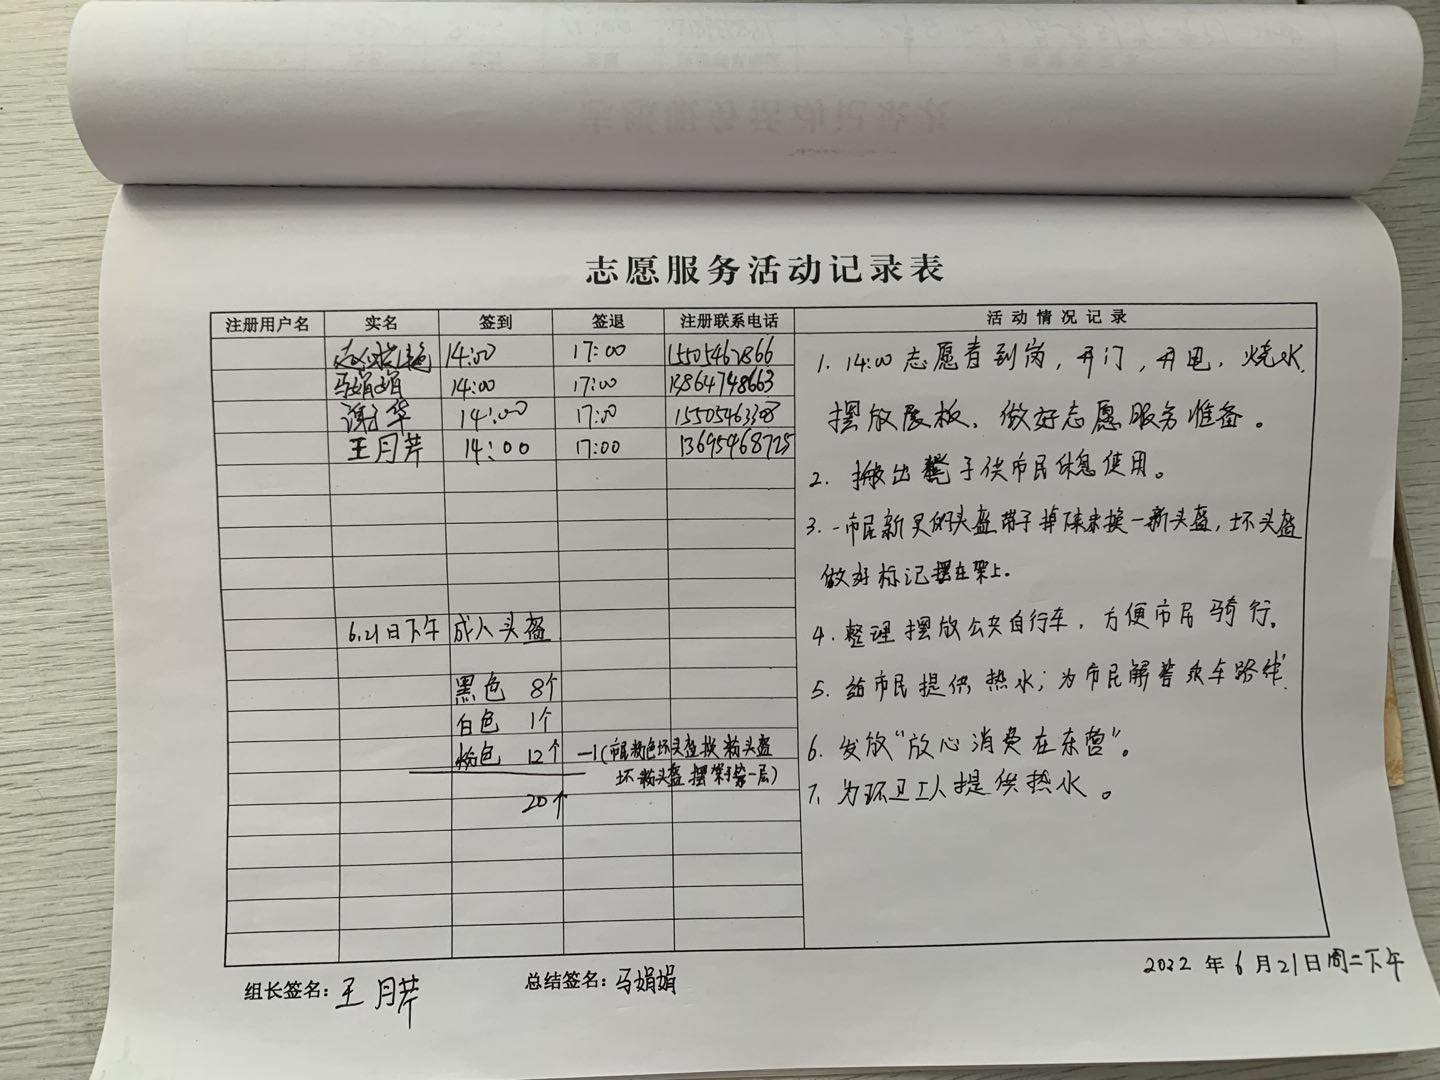 志愿服务活动记录表
注册用户名 实名 签到 签退 注册联系电话 活动情况记录
14:00 17:00 15505462866
马娟娟 14:00 17:00
谢华 14:00 17:00 15505463308
王月芹 14:00 17:00 13695468725
1. 14:00 志愿者到岗，开门，开电，烧水，
摆放展板、做好志愿服务准备。
2. 搬出凳子供市民休息使用。
3. 一市民新买的头盔带子掉下来换一新头盔，坏头盔
做好标记摆在架上。
4. 整理摆放公共自行车，方便市民骑行。
5. 给市民提供热水；为市民解答乘车路线。
6. 发放“放心消费在东营”。
7. 为环卫工人提供热水。
6.21日下午 成人头盔
黑色 8个
白色 1个
粉色 12个 —1（市民粉色坏头盔换粉头盔
坏粉头盔摆架子第一层）
20个
组长签名：王月芹 总结签名：马娟娟
2022 年 6 月 21 日 周二下午